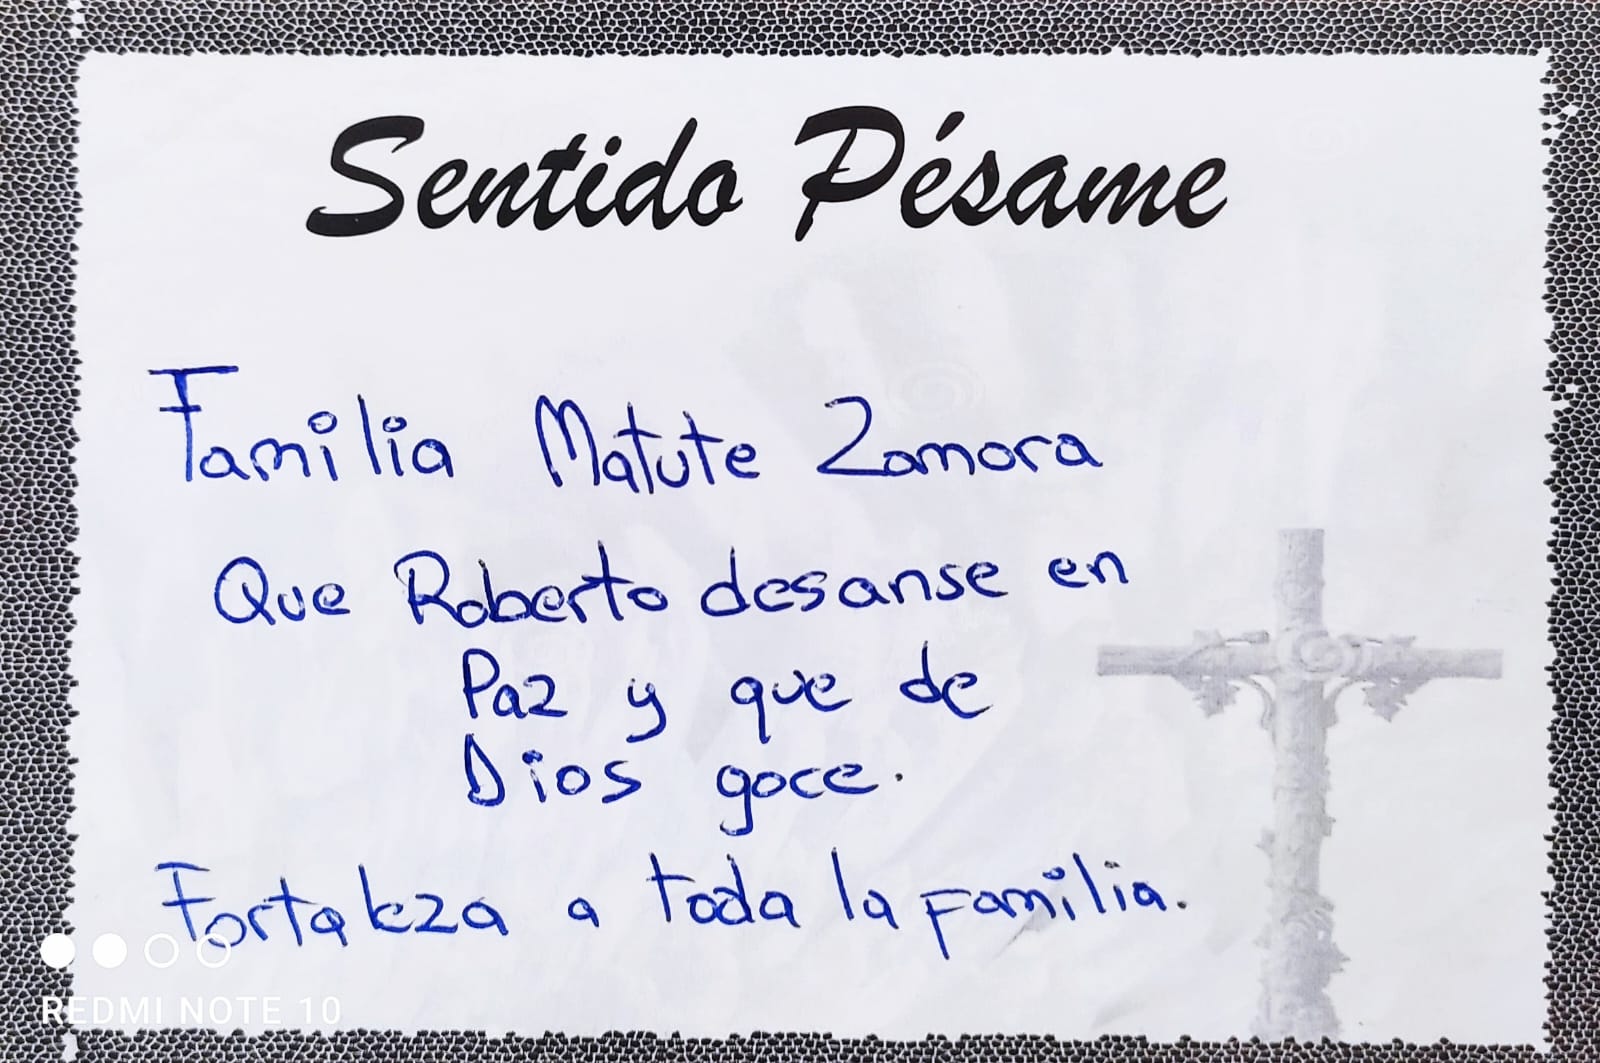 Sentido Pésame
Familia Matute Zamora
Que Roberto desanse en
Paz y que de
Dios goce.
Fortaleza a toda la familia.
REDMI NOTE 10